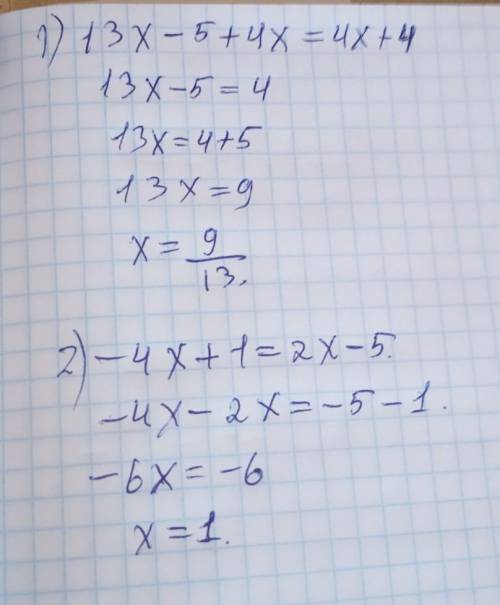 1) 13x - 5 + 4x = 4x + 4
13x - 5 = 4
13x = 4 + 5
13x = 9
x = 9/13.
2) -4x + 1 = 2x - 5.
-4x - 2x = -5 - 1.
-6x = -6
x = 1.